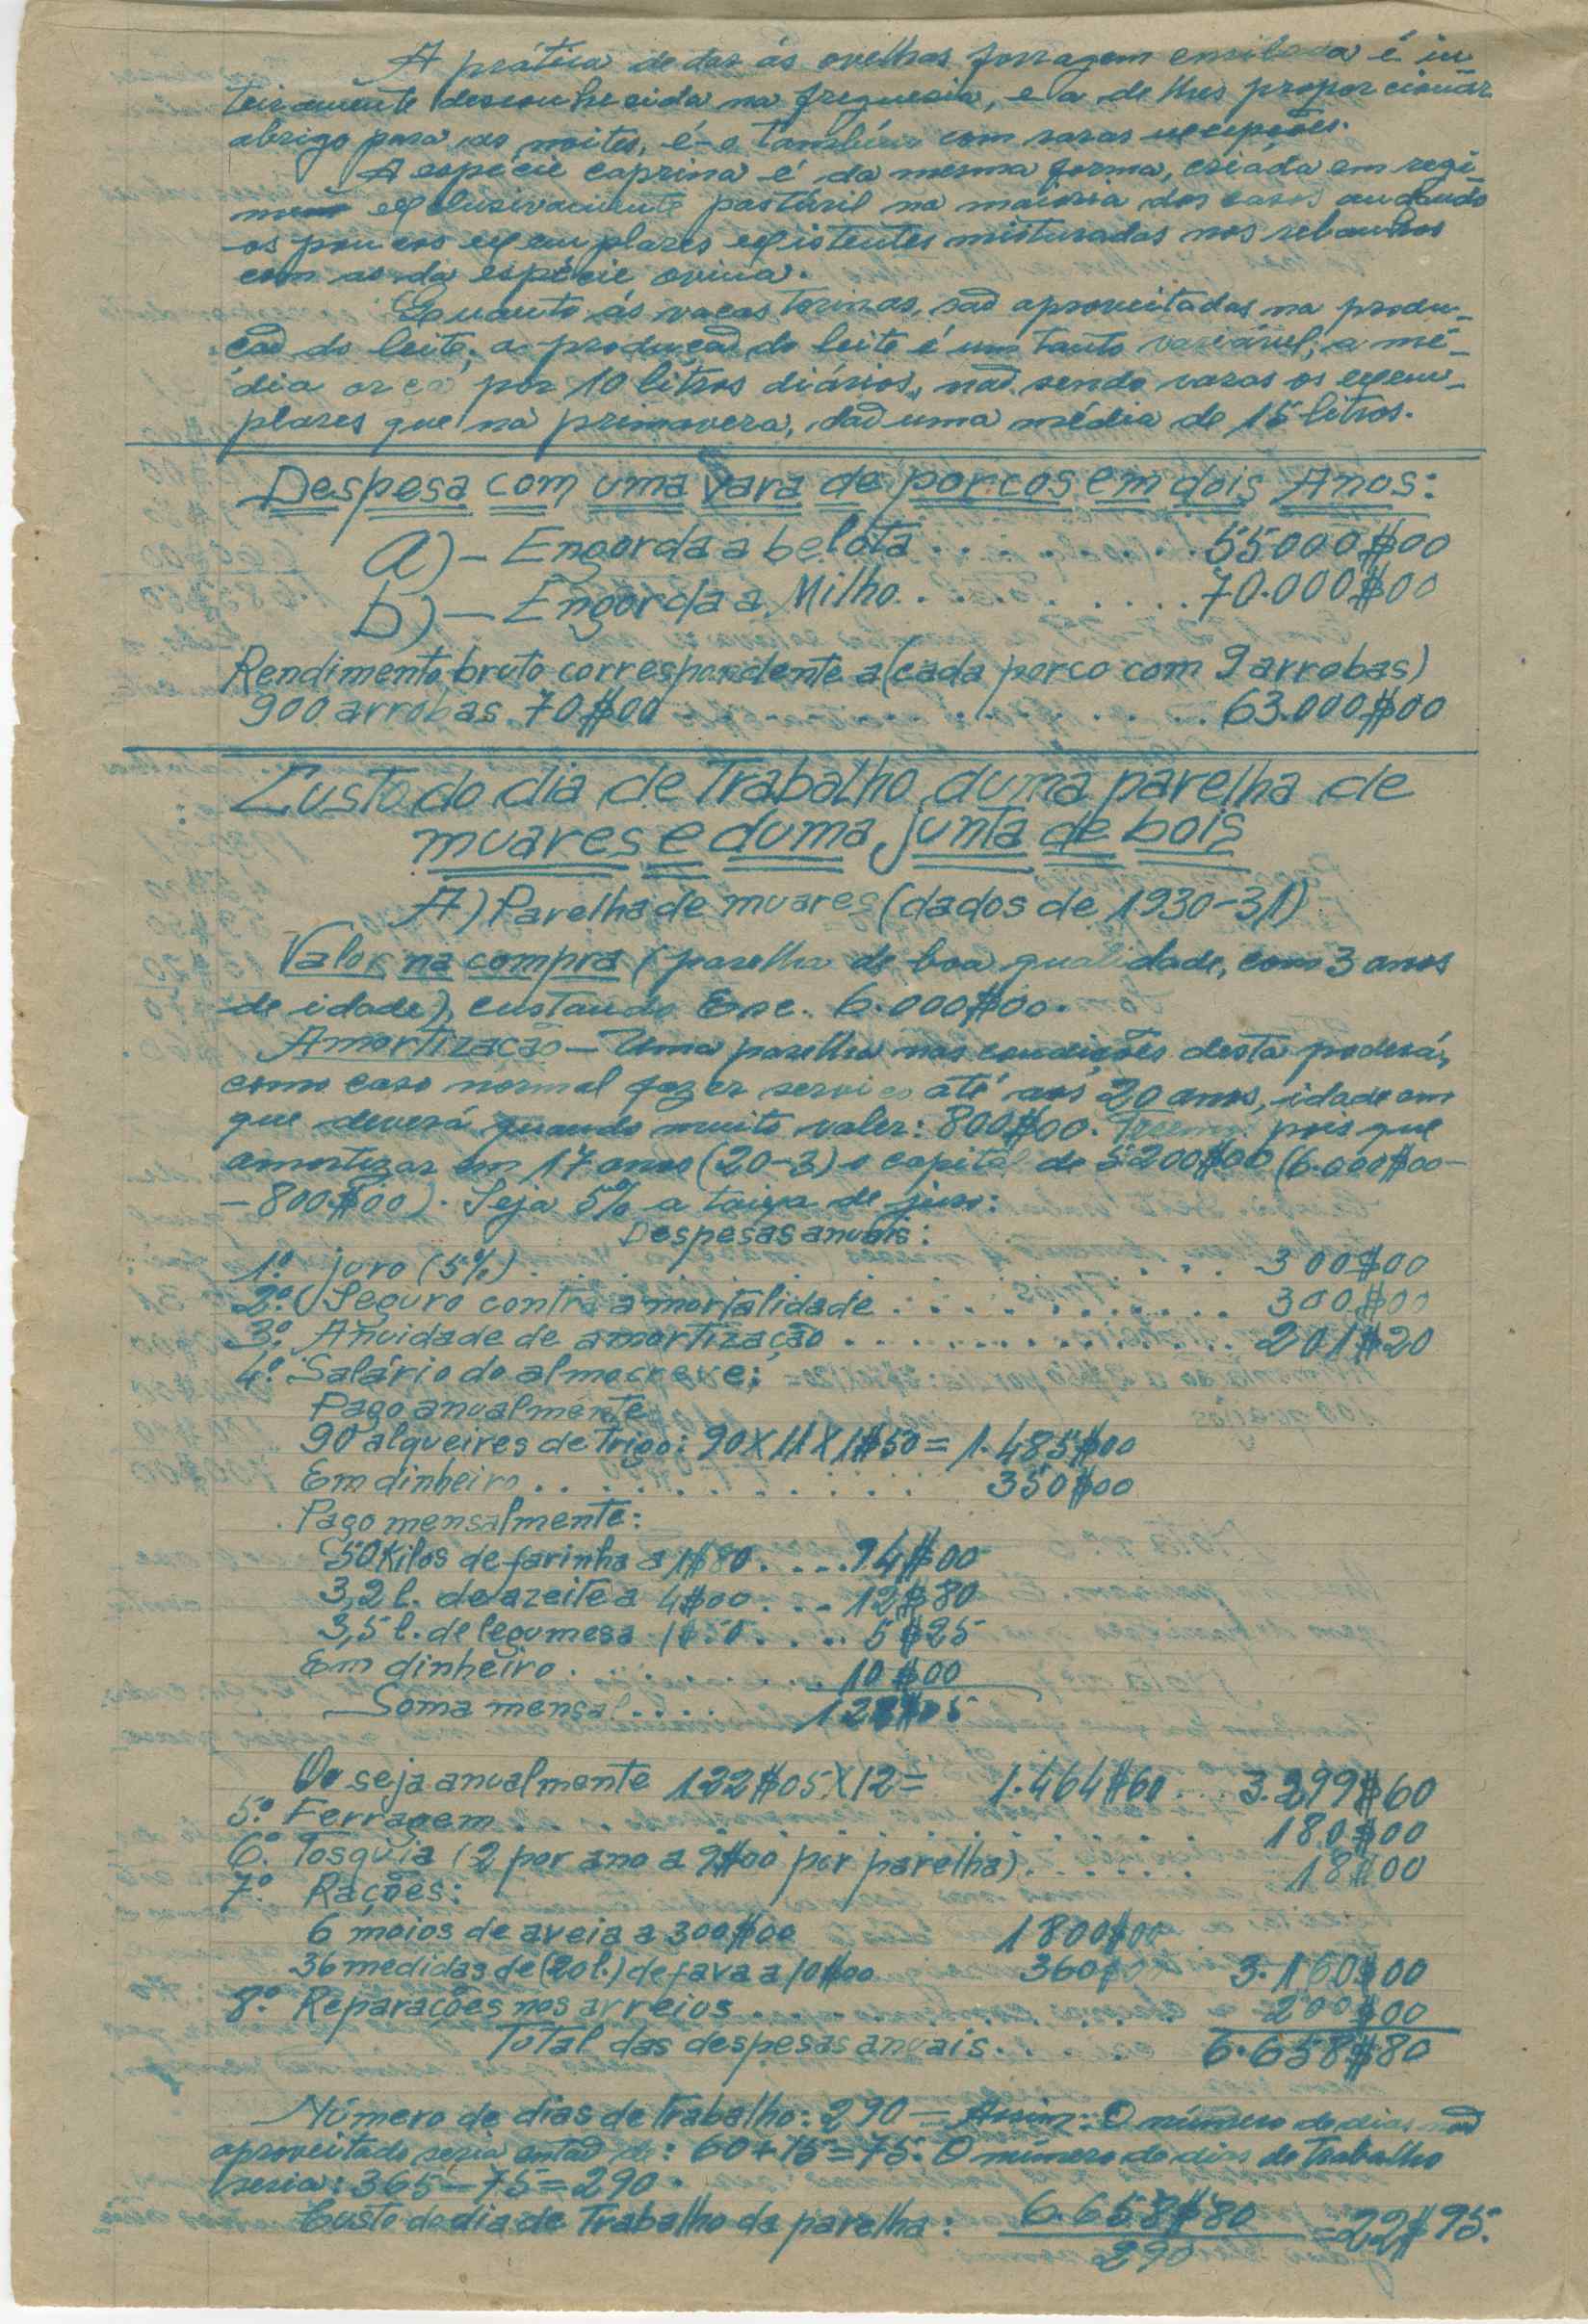 A prática de dar ás ovelhas forragem ensilada é in-
teiramente desconhecida na freguesia, e a de lhes proporcionar
abrigo para as noites, é-o também com raras excepções.
A espécie caprina é da mesma forma, criáda em regi-
men exclusivamente pastúril na maioria dos casos andando
os poucos exemplares existentes misturadas nos rebanhos
com as da espécie ovina.
Quanto ás vacas torinas, sao aproveitadas na produ-
çaõ do leite; a produçaõ do leite é um tanto variável; a mé-
dia orça por 10 litros diários, naõ sendo raras os exem-
plares que na primavera, daõ uma média de 15 litros.
Despesa com uma vara de porcos em dois Anos:
a) - Engorda a belota . . . . . . 55000$00
b) - Engorda a Milho . . . . . . 70.000$00
Rendimento bruto correspondente a (cada porco com 9 arrobas)
900 arrobas 70$00 . . . . . . 63.000$00
Custo do dia de Trabalho duma parelha de
muares e duma junta de bois
A) Parelha de muares (dados de 1930-31)
Valor na compra (parelha de boa qualidade, com 3 anos
de idade), custando Esc. 6.000$00.
Amortização - Uma parelha nas condições desta poderá,
como caso normal fazer serviço até aos 20 anos, idade em
que deverá quando muito valer: 800$00. Temos pois que
amortizar em 17 anos (20-3) o capital de 5200$00 (6.000$00-
-800$00). Seja 5% a taixa de juro:
Despesas anuais:
1.º juro (5%) . . . . . . 300$00
2.º Seguro contra a mortalidade . . . . . . 300$00
3.º Anuidade de amortização . . . . . . 201$20
4.º Salário do almocreve:
Pago anualmente
90 alqueires de trigo: 90X11X1$50= 1.485$00
Em dinheiro . . . . . . 350$00
Pago mensalmente:
50 Kilos de farinha a 1$80 . . . . 94$00
3,2 l. de azeite a 4$00 . . . 12$80
3,5 l. de legumes a 1$50 . . . . 5$25
Em dinheiro . . . . . . 10$00
Soma mensal . . . . 122$05
Ou seja anualmente 122$05X12= 1.464$60 . . . 3.299$60
5.º Ferragem . . . . . . 180$00
6.º Tosquia (2 por ano a 9$00 por parelha) . . . . . . 18$00
7.º Rações:
6 moios de aveia a 300$00 1800$00
36 medidas de (20 l.) de fava a 10$00 360$00 3.160$00
8.º Reparações nos arreios . . . . . . 200$00
Total das despesas anuais . . . . . 6.658$80
Número de dias de Trabalho: 290 - Assim: O número de dias naõ
aproveitado seria entaõ de: 60+15=75. O número de dias de trabalho
seria: 365-75=290.
Custo do dia de Trabalho da parelha: 6.658$80 =22$95.
290